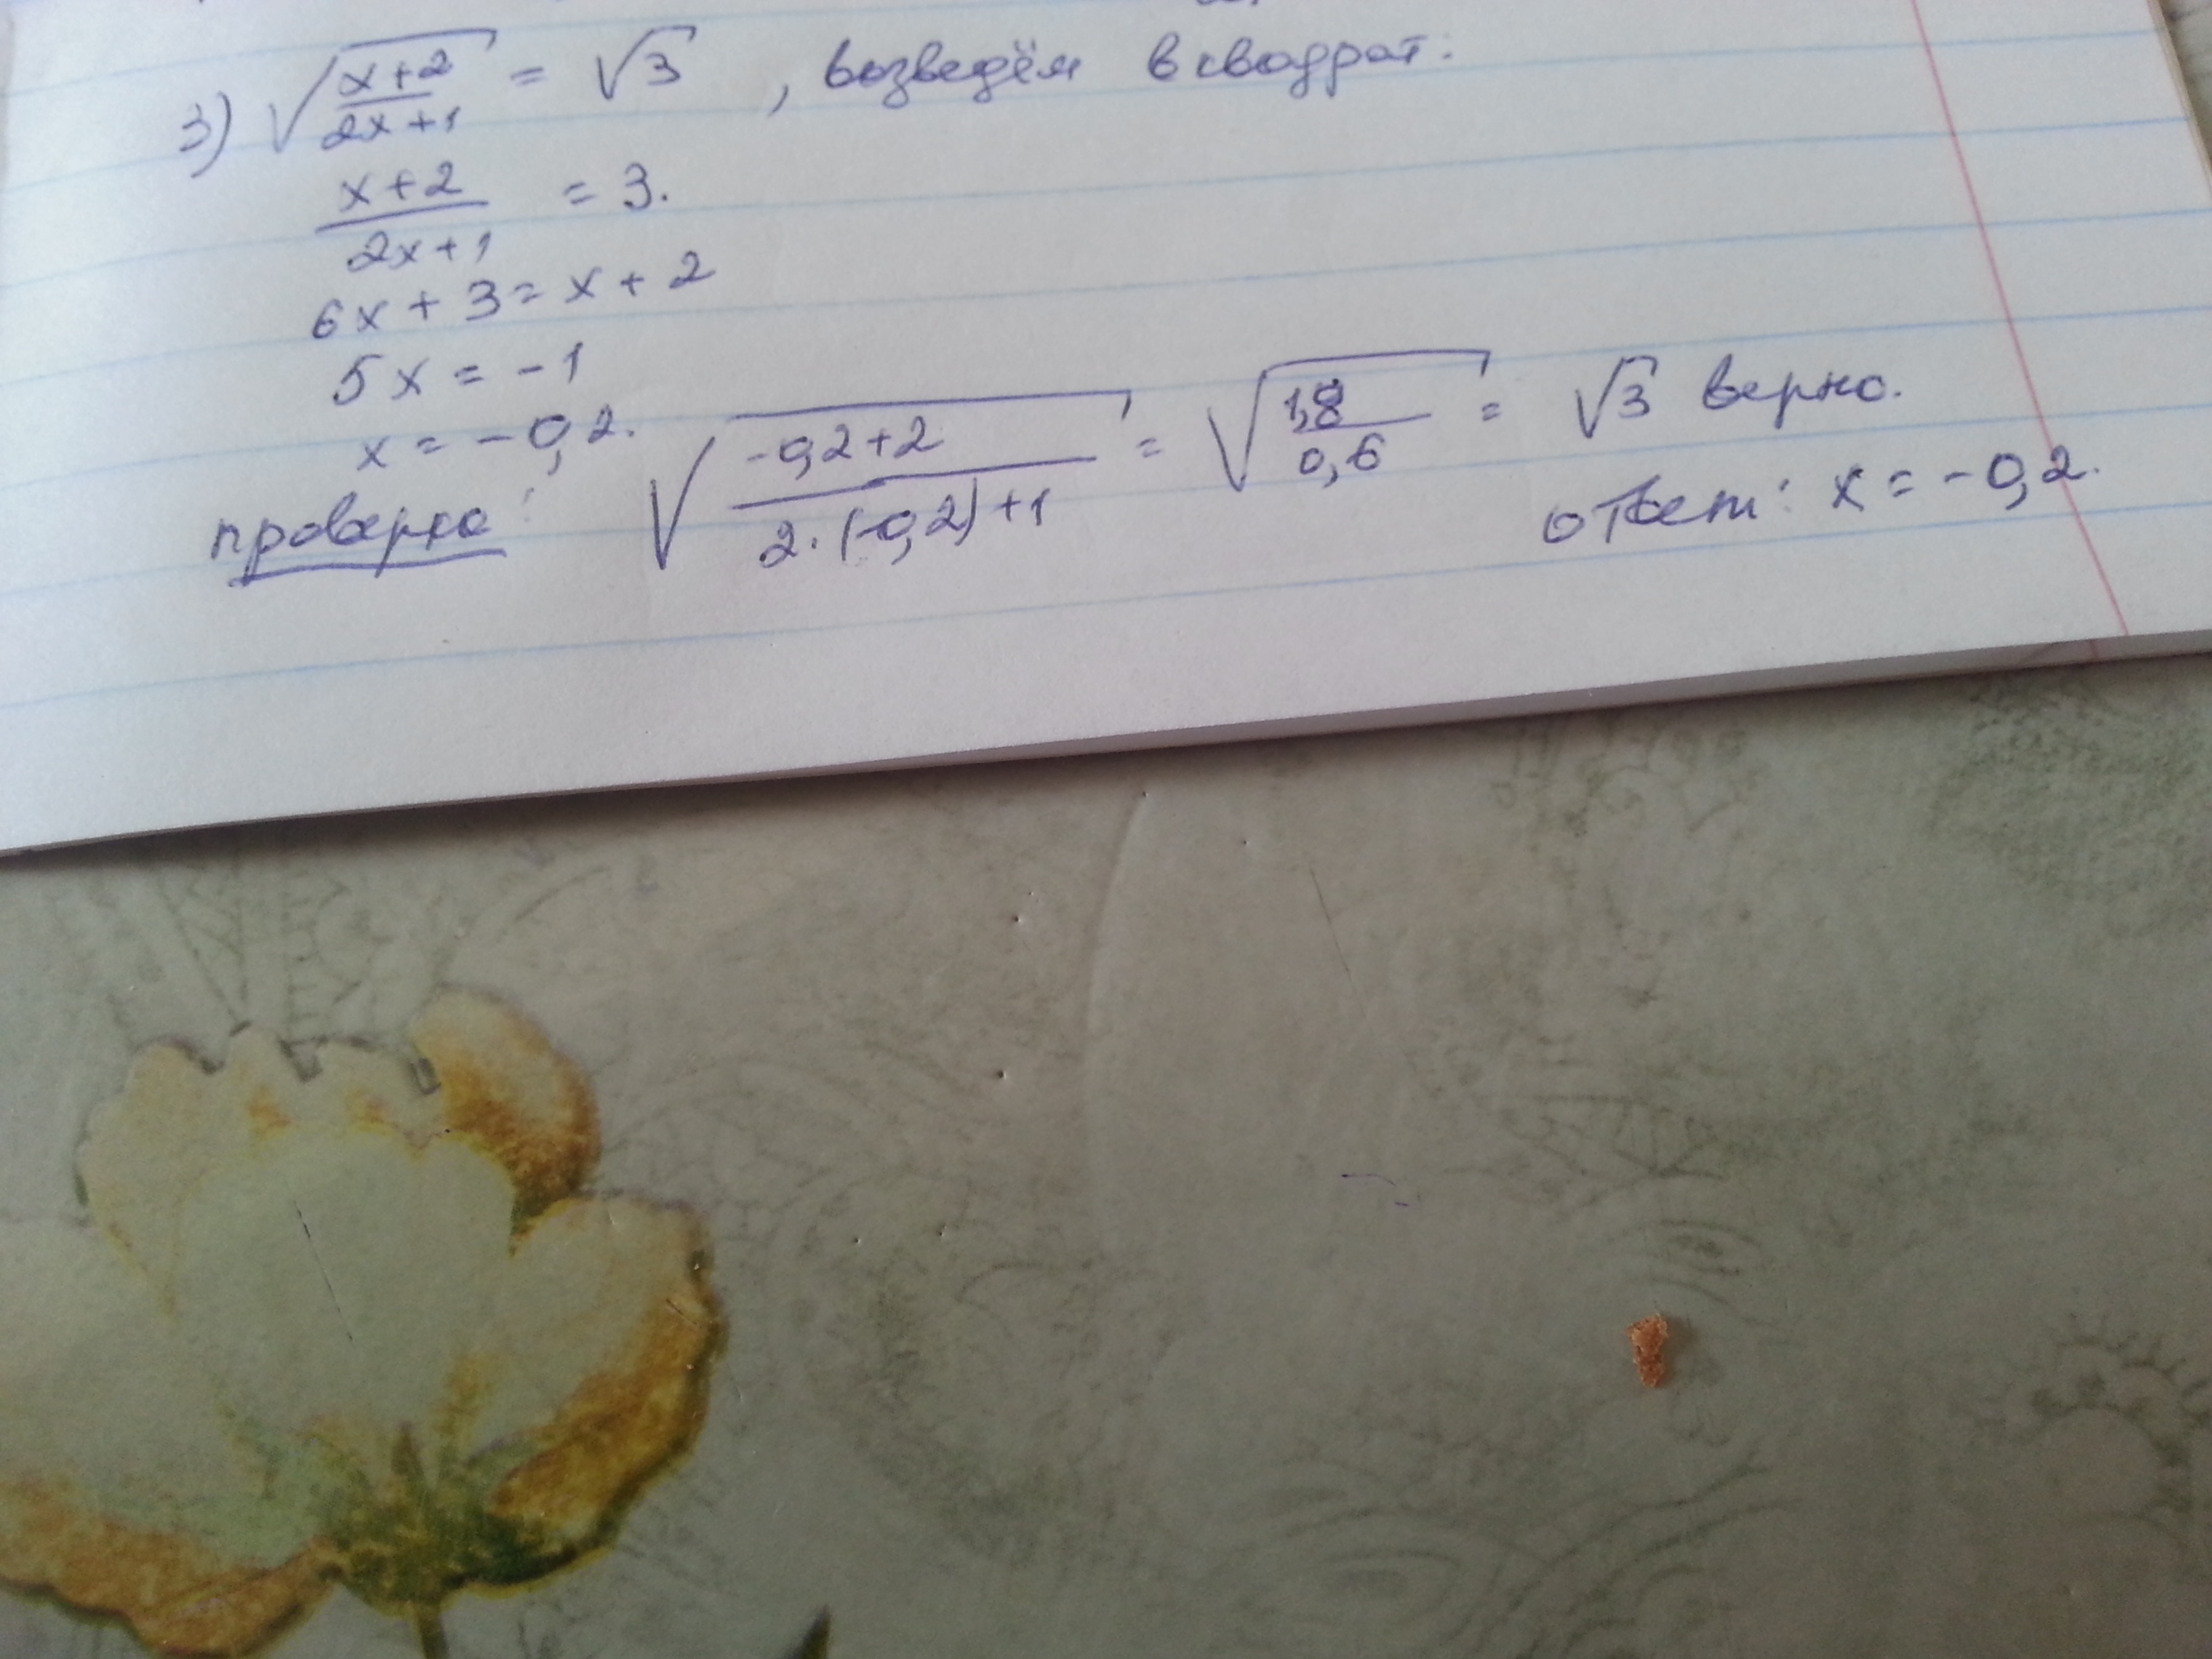 3) √(x+2)/(2x+1) = √3 , возведём в квадрат:
(x+2)/(2x+1) = 3.
6x + 3 = x + 2
5x = -1
x = -0,2.
проверка: √(-0,2+2)/(2·(-0,2)+1) = √1,8/0,6 = √3 верно.
ответ: x = -0,2.